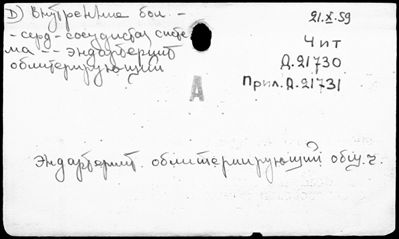 D) Внутренние бол. -
- серд - сосудистая систе
ма -- эндартериит
облитерирующий
21.X.59
Чит
Д.21730
Прил. Д.21731
А
Эндартериит облитерирующий общ. ч.